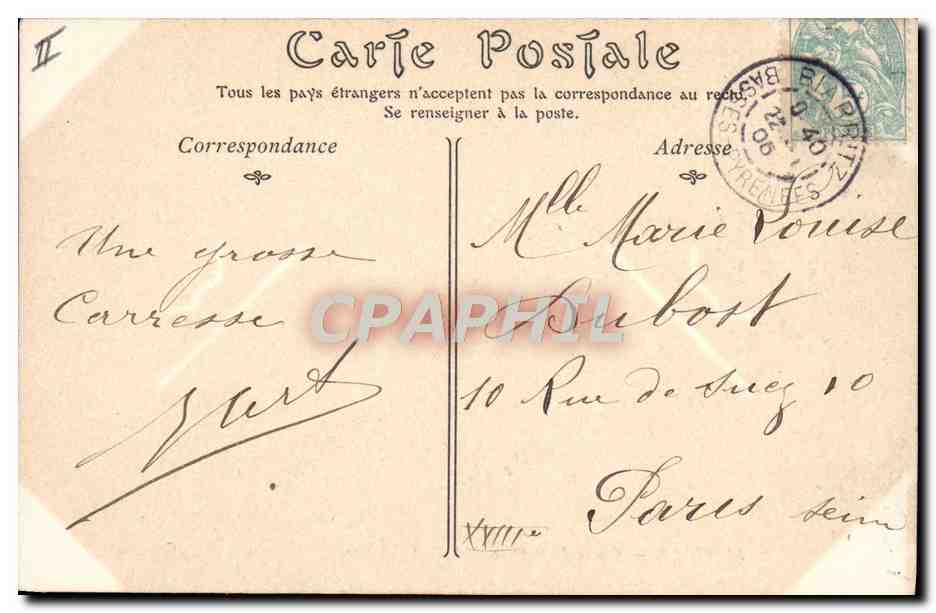 II
Carte Postale
Tous les pays étrangers n'acceptent pas la correspondance au recto,
Se renseigner à la poste.
Correspondance
Adresse
BIARRITZ
BASSES PYRENEES
9 40
22
05
Une grosse
Carresse
Mlle Marie Louise
Dubost
10 Rue de Suez 10
Paris Seine
XVIIIe
CPAPHIL